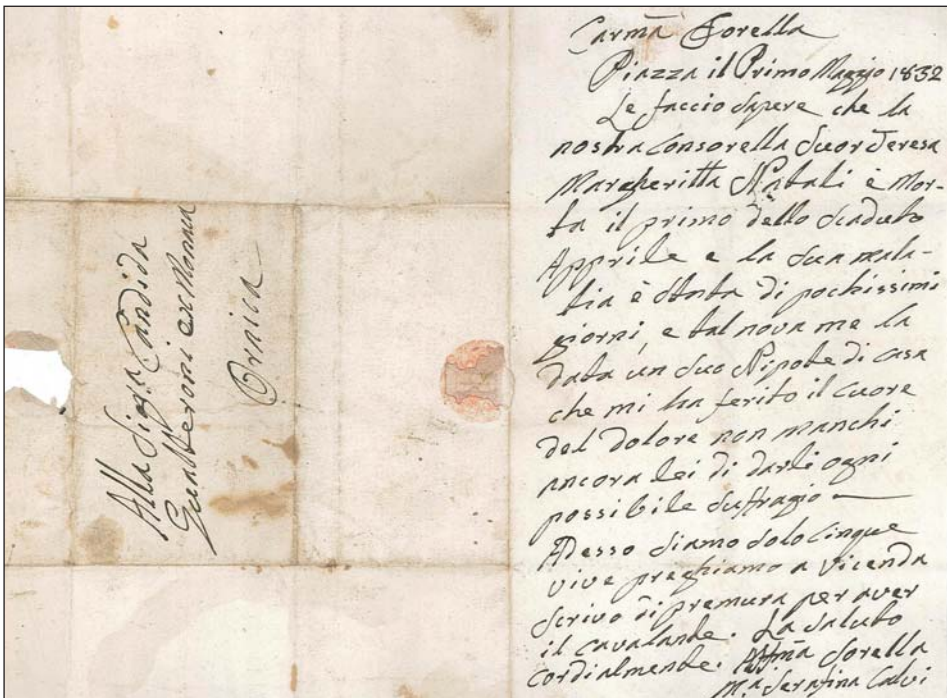 Carma Sorella
Piazza il Primo Maggio 1832
Le faccio sapere che la
nostra Consorella Suor Teresa
Margheritta Natali è Mor-
ta il primo dello scaduto
Apprile e la sua mala-
tia è stata di pochissimi
giorni, e tal nova me la
data un suo Nipote di casa
che mi ha ferito il cuore
del dolore non manchi
ancora lei di darli ogni
possibile suffragio
Adesso siamo solo cinque
vive preghiamo a vicenda
scrivo di premura per aver
il cavalante. La saluto
cordialmente. Affma Sorella
Ma Serafina Calvi
Alla Sigra Candida
Gualteroni exMonaca
Ornica